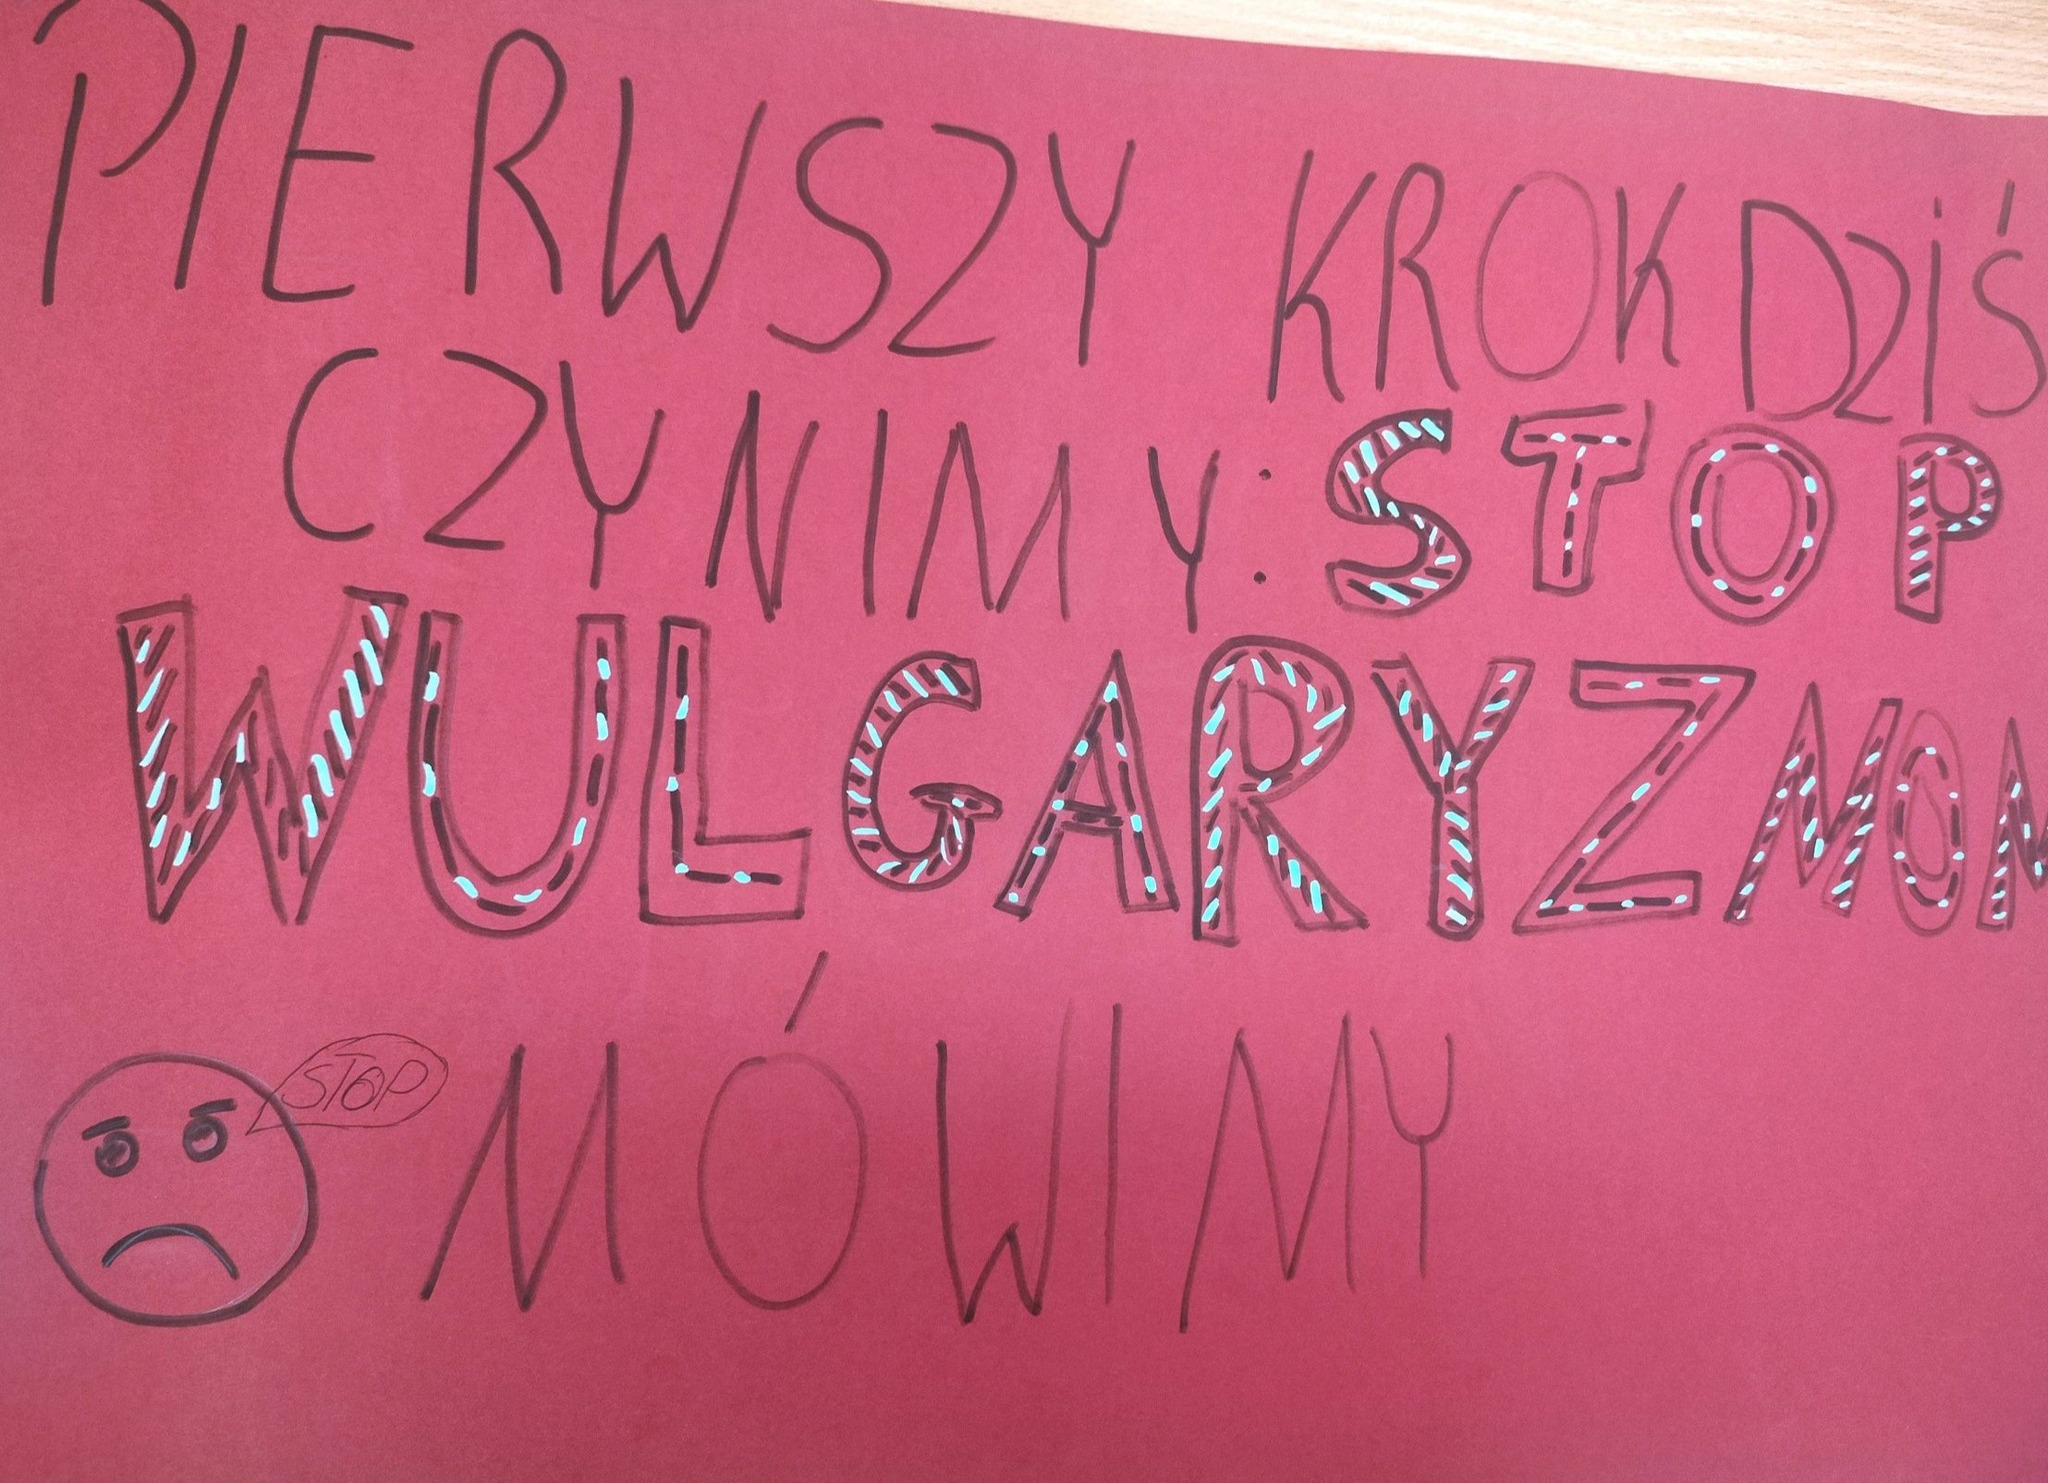 PIERWSZY KROK DZIŚ
CZYNIMY: STOP
WULGARYZMOM
STOP
MÓWIMY